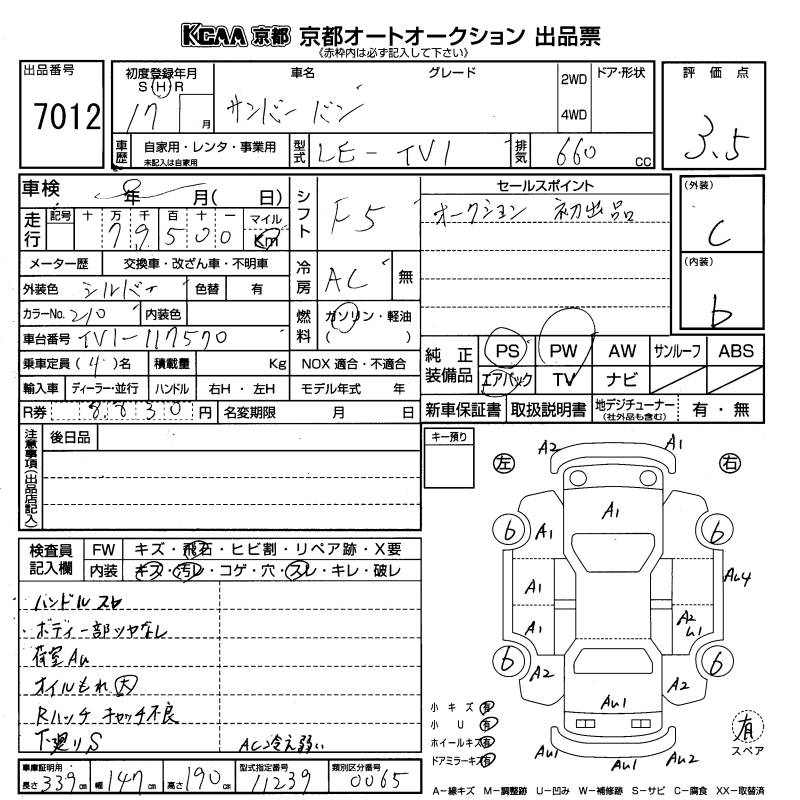 KCAA 京都 京都オートオークション 出品票
《赤枠内は必ず記入して下さい》
出品番号
7012
初度登録年月
S H R
17 月
車名
グレード
サンバー バン
2WD
4WD
ドア・形状
評価点
3.5
車歴
自家用・レンタ・事業用
未記入は自家用
型式
LE-TV1
排気
660 cc
車検 年 月( 日)
シフト
F5
走行
記号 十 万 千 百 十 一 マイル
79500 Km
メーター歴 交換車・改ざん車・不明車
冷房
AC 無
外装色 シルバー 色替 有
カラーNo. 210 内装色
燃料
ガソリン・軽油
( )
車台番号 TV1-117570
乗車定員 (4)名 積載量 Kg NOX 適合・不適合
輸入車 ディーラー・並行 ハンドル 右H・左H モデル年式 年
R券 8830 円 名変期限 月 日
セールスポイント
オークション 初出品
(外装)
C
(内装)
b
純正装備品
PS PW AW サンルーフ ABS
エアバック TV ナビ
新車保証書 取扱説明書 地デジチューナー
(社外品も含む)
有・無
注意事項(出品店記入)
後日品
キー預り
検査員記入欄
FW キズ・飛石・ヒビ割・リペア跡・X要
内装 キズ・汚レ・コゲ・穴・スレ・キレ・破レ
ハンドルスレ
ボディ一部ツヤなし
荷室AU
オイルもれ大
Rハッチ キャッチ不良
下廻りS
AC冷え弱い
左 右
A2 A1
A1
6 A1 6
A1 AU4
A1 A2 U1
6 A2 A2 6
AU1
AU1 AU1 AU2
小キズ 有
小U 有
ホイールキズ 有
ドアミラーキズ 有
有
スペア
車庫証明用
長さ 339 cm 幅 147 cm 高さ 190 cm
型式指定番号
11239
類別区分番号
0065
A-線キズ M-調整跡 U-凹み W-補修跡 S-サビ C-腐食 XX-取替済